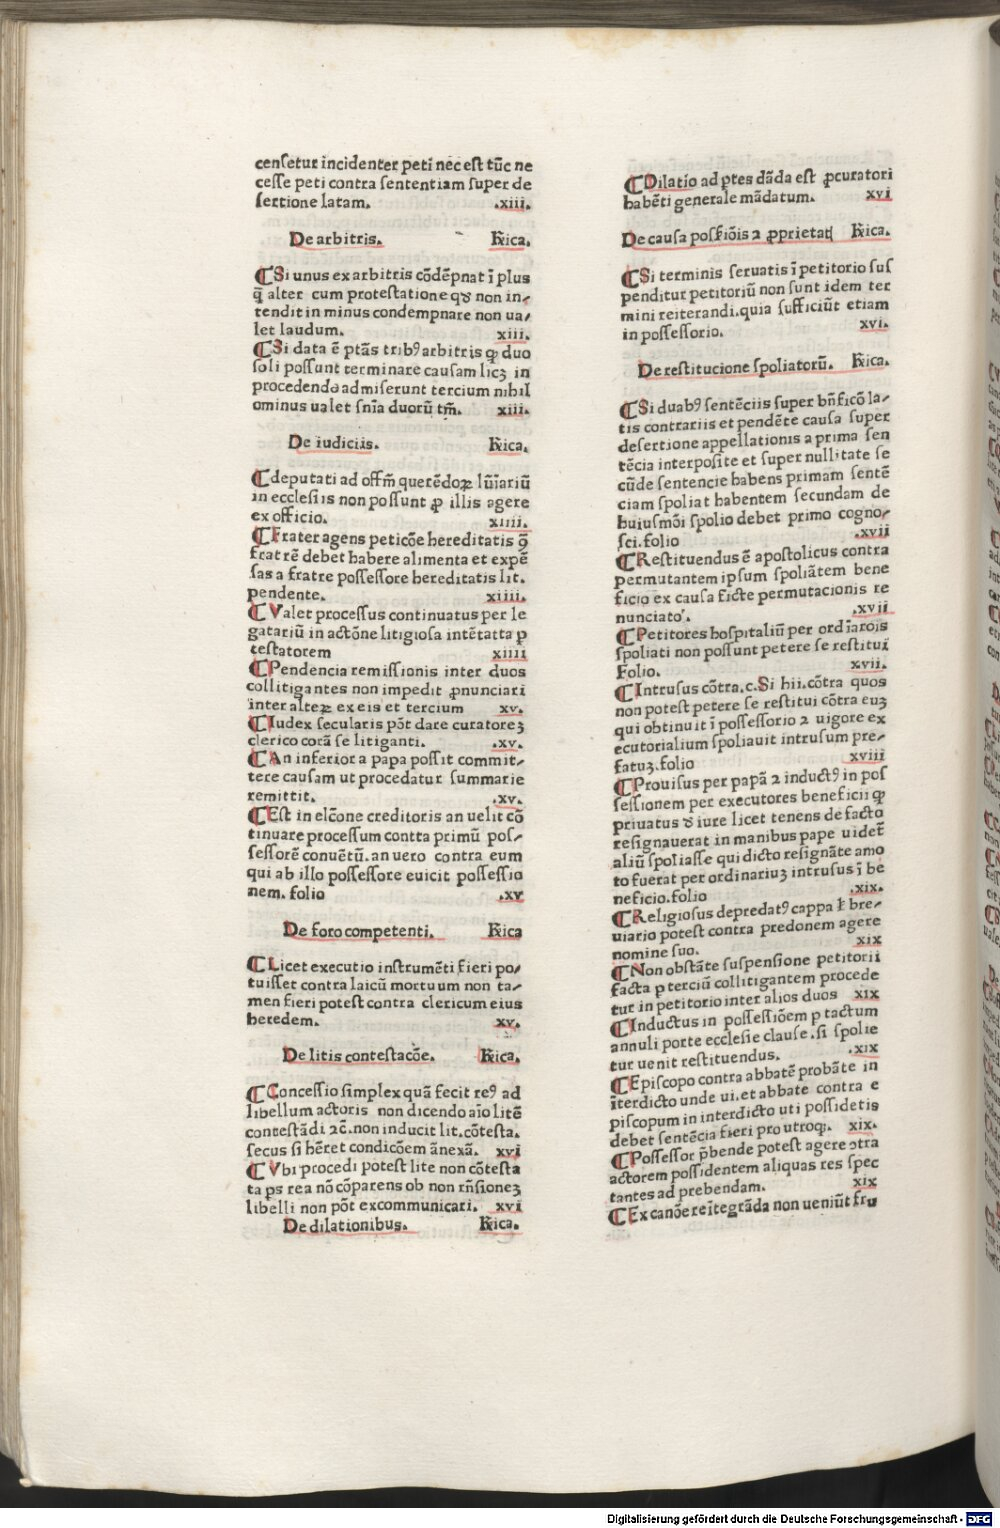 censetur incidenter peti nec est tūc ne
cesse peti contra sententiam super de
sertione latam. .xiii.
De arbitris. Rica.
¶ Si unus ex arbitris cōdēpnat ī plus
q̄ alter cum protestatione qđ non in-
tendit in minus condempnare non ua-
let laudum. xiii.
¶ Si data ē ptās tribꝯ arbitris ꝙ duo
soli possunt terminare causam licꝫ in
procedendo admiserunt tercium nihil
ominus ualet snīa duorū tm̄. xiii.
De iudiciis. Rica.
¶ deputati ad offm̄ querēdoꝝ lūīariū
in ecclesiis non possunt ꝓ illis agere
ex officio. xiiii.
¶ Frater agens peticōe hereditatis ꝯ̄
fratrē debet habere alimenta et expē
sas a fratre possessore hereditatis lit.
pendente. xiiii.
¶ Valet processus continuatus per le
gatariū in actōne litigiosa intētatta ꝑ
testatorem xiiii
¶ Pendencia remissionis inter duos
collitigantes non impedit ꝓnunciari
inter alteꝝ ex eis et tercium xv.
¶ Iudex secularis pōt dare curatoreꝫ
clerico corā se litiganti. .xv.
¶ An inferior a papa possit commit-
tere causam ut procedatur summarie
remittit. .xv.
¶ Est in elcōne creditoris an uelit cō
tinuare processum contta primū pos-
sessorē conuētū. an uero contra eum
qui ab illo possessore euicit possessio
nem. folio .xv
De foro competenti. Rica
¶ Licet executio instrumēti fieri po-
tuisset contra laicū mortuum non ta-
men fieri potest contra clericum eius
heredem. xv.
De litis contestacōe. Rica.
¶ Concessio simplex quā fecit reꝯ ad
libellum actoris non dicendo aīo litē
contestādi ⁊c̄. non inducit lit. cōtesta.
secus si hēret condicōem ānexā. xvi
¶ Vbi procedi potest lite non cōtesta
ta ps rea nō cōparens ob non rn̄sioneꝫ
libelli non pōt excommunicari. xvi
De dilationibus. Rica.
¶ Dilatio ad ptes dāda est ꝓcuratori
habēti generale mādatum. xvi
De causa possīōis ⁊ ꝓprietatꝭ Rica.
¶ Si terminis seruatis ī petitorio sus
penditur petitoriū non sunt idem ter
mini reiterandi. quia sufficiūt etiam
in possessorio. xvi.
De restitucione spoliatorū. Rica.
¶ Si duabꝯ sentēciis super bn̄ficō la-
tis contrariis et pendēte causa super
desertione appellationis a prima sen
tēcia interposite et super nullitate se
cūde sentencie habens primam sentē
ciam spoliat habentem secundam de
huiusmōi spolio debet primo cogno-
sci. folio .xvii
¶ Restituendus ē apostolicus contra
permutantem ipsum spoliātem bene
ficio ex causa ficte permutacionis re
nunciato. .xvii
¶ Petitores hospitaliū per ordīarois
spoliati non possunt petere se restitui
Folio. xvii.
¶ Intrusus cōtra. c. Si hii. cōtra quos
non potest petere se restitui cōtra euꝫ
qui obtinuit ī possessorio ⁊ uigore ex
ecutorialium spoliauit intrusum pre-
fatuꝫ. folio xviii
¶ Prouisus per papā ⁊ inductꝯ in pos
sessionem per executores beneficii ꝙ
priuatus đ iure licet tenens de facto
resignauerat in manibus pape uidet̄
aliū spoliasse qui dicto resignāte amo
to fuerat per ordinariuꝫ intrusus ī be
neficio. folio .xix.
¶ Religiosus depredatꝯ cappa ł bre-
uiario potest contra predonem agere
nomine suo. xix
¶ Non obstāte suspensione petitorii
facta ꝑ terciū collitigantem procede
tur in petitorio inter alios duos xix
¶ Inductus in possessiōem ꝑ tactum
annuli porte ecclesie clause. si spolie
tur uenit restituendus. .xix
¶ Episcopo contra abbatē probāte in
īterdicto unde ui. et abbate contra e
piscopum in interdicto uti possidetis
debet sentēcia fieri pro utroqꝫ. xix.
¶ Possessor p̄bende potest agere ↄtra
actorem possidentem aliquas res spec
tantes ad prebendam. xix
¶ Ex canōe reītegrāda non ueniūt fru
Digitalisierung gefördert durch die Deutsche Forschungsgemeinschaft - DFG